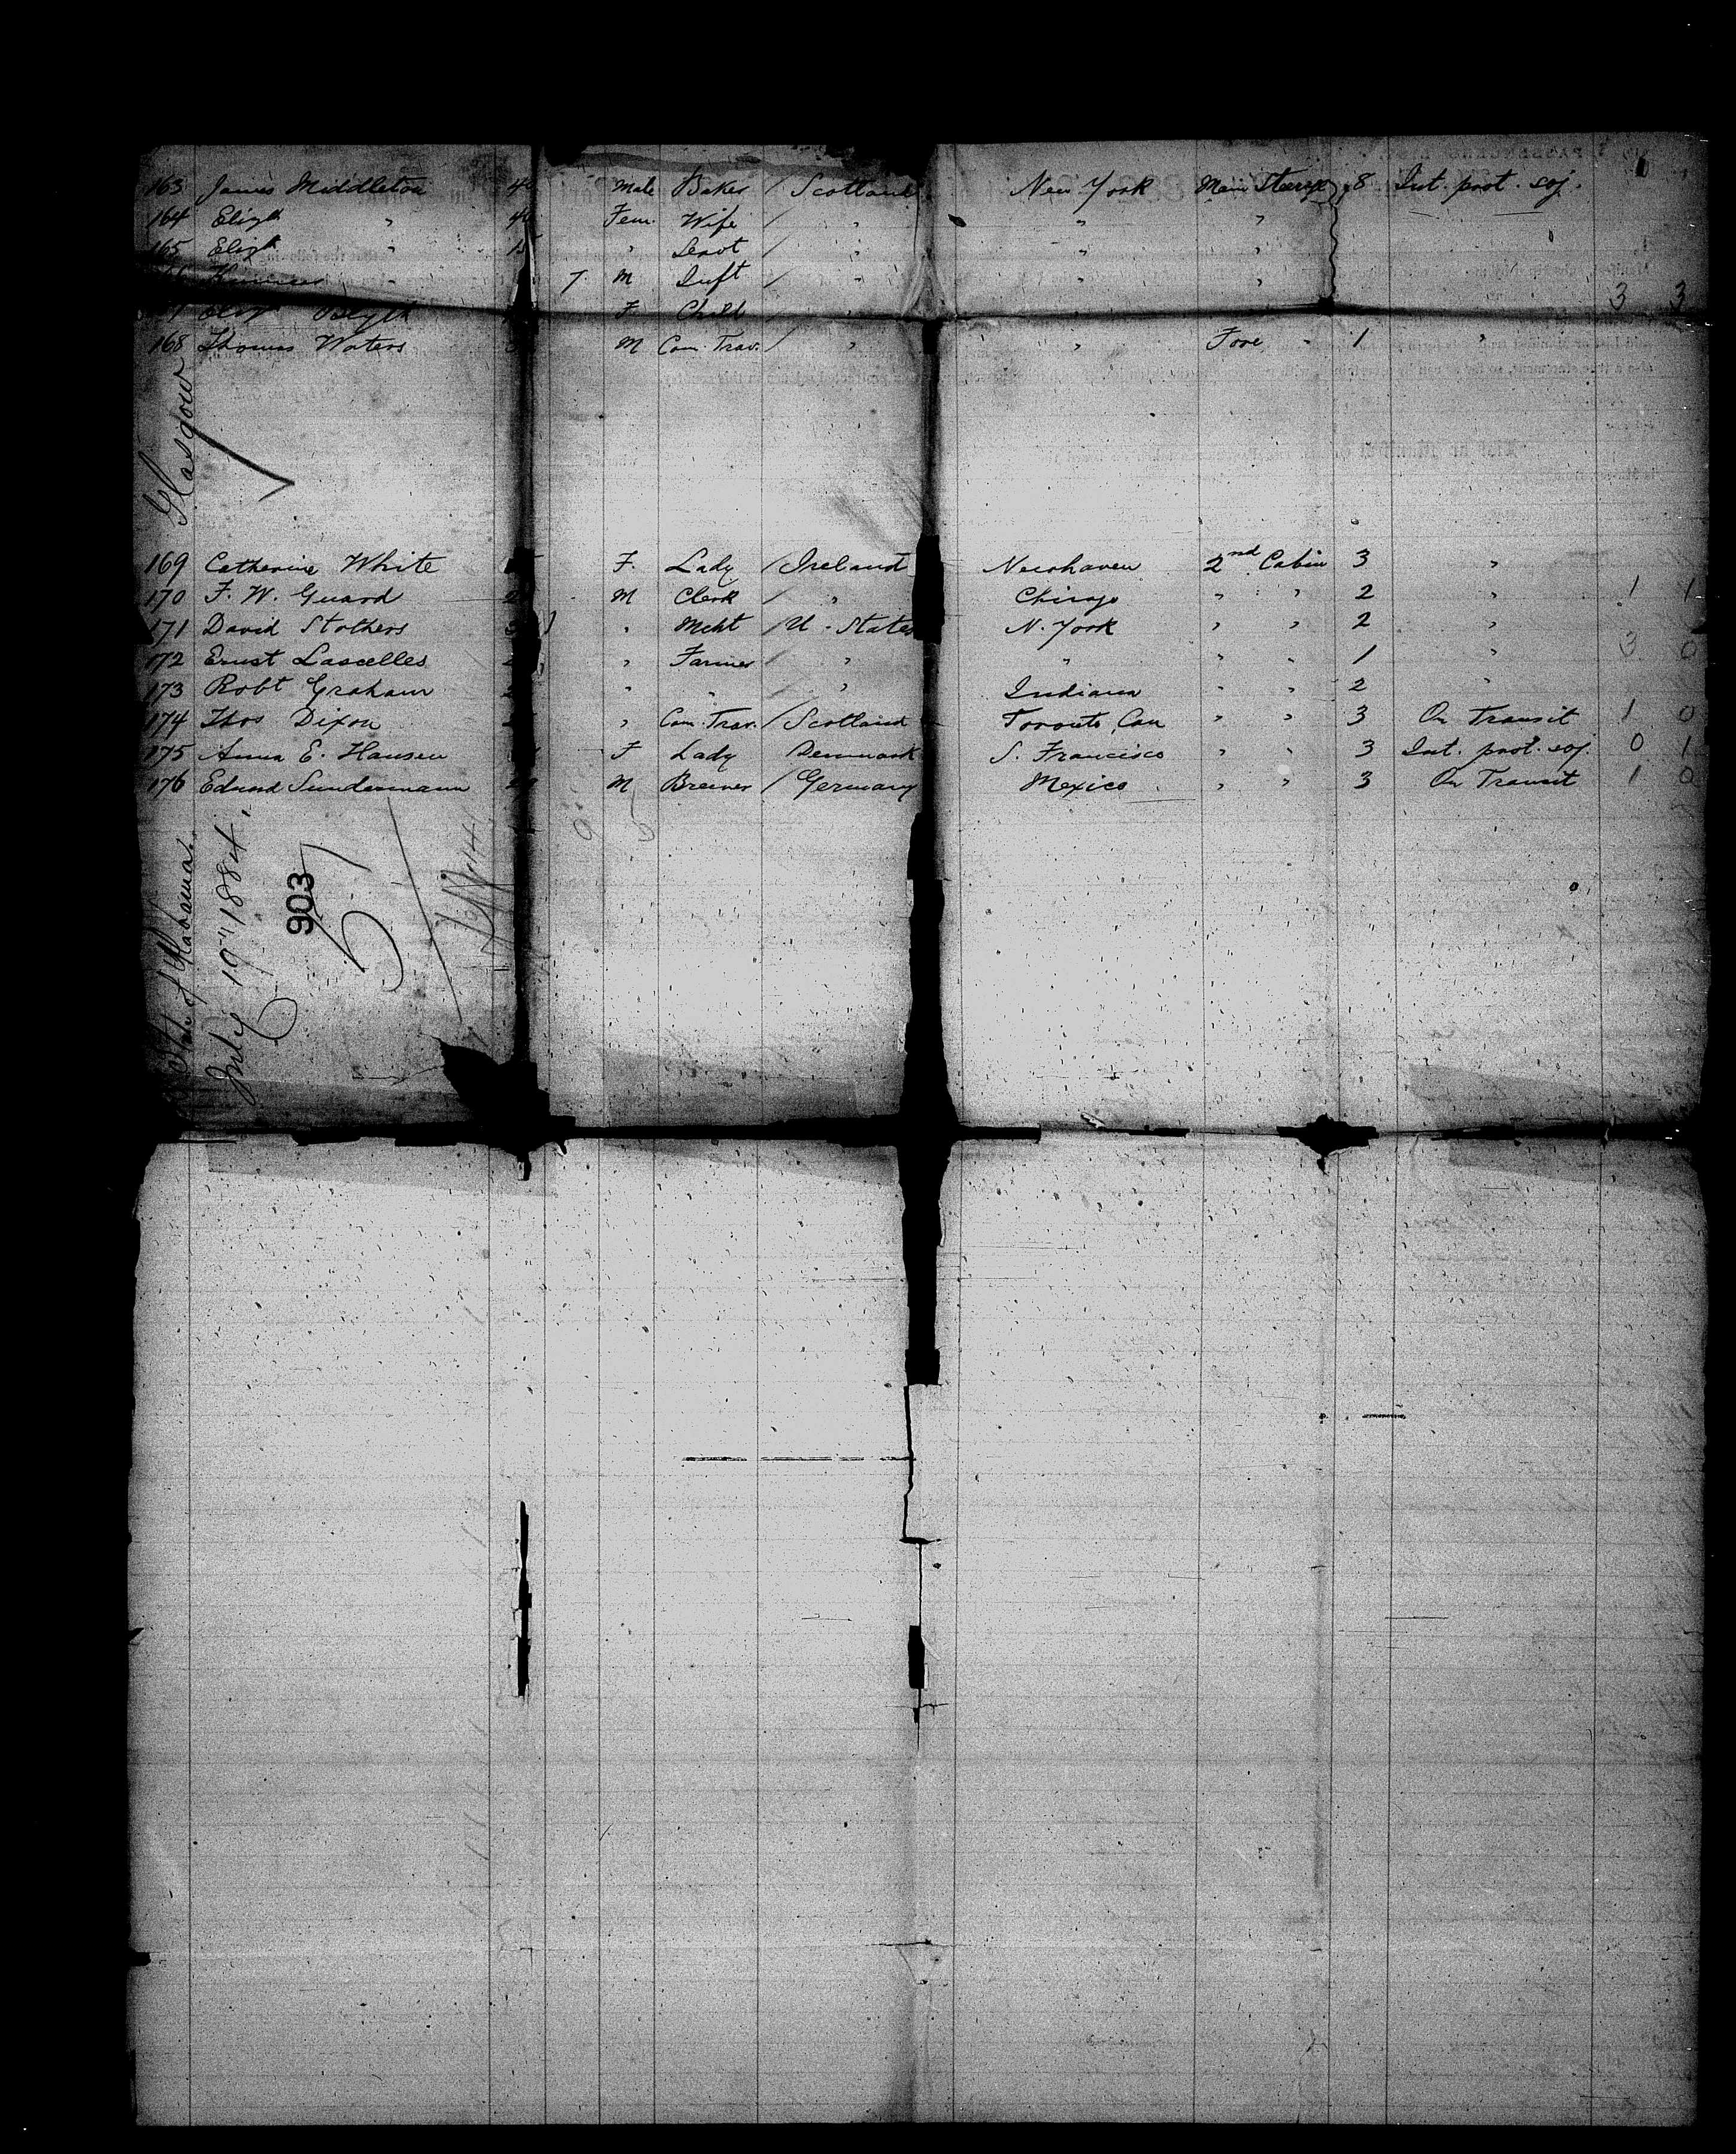 163 James Middleton 40 Male Baker / Scotland New York Main Steerage 8 Int. prot. soj.
164 Elizth " 40 Fem. Wife / " " "
165 Elizth " 15 " Servt / " " "
" 7 M Inft / " " "
F Child 3 3
168 Thomas Waters M Com. Trav. / " " Fore " 1 "
Glasgow
169 Catherine White F. Lady / Ireland Newhaven 2nd Cabin 3 "
170 F. W. Guard M Clerk / " Chicago " " 2 " 1 1
171 David Stothers " Mcht / U. States N. York " " 2 "
172 Ernst Lascelles " Farmer / " " " " 1 " 3 0
173 Robt Graham " " " Indiana " " 2 "
174 Thos Dixon " Com. Trav. / Scotland Toronto, Can " " 3 On Transit 1 0
175 Anna E. Hansen F Lady Denmark S. Francisco " " 3 Int. prot. soj. 0 1
176 Edund Sundermann M Brewer / Germany Mexico " " 3 On Transit 1 0
State of Alabama.
July 19th 1884.
903